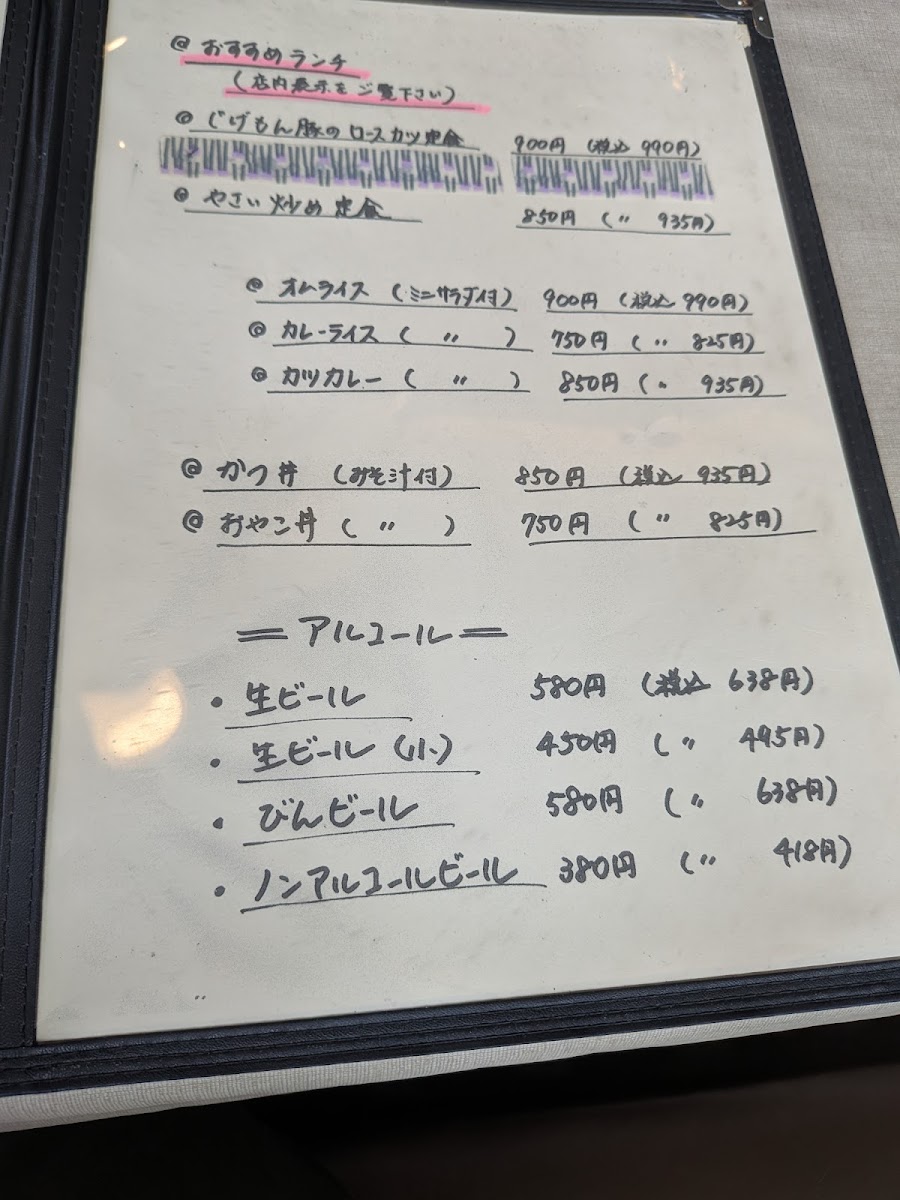 @ おすすめランチ
(店内表示をご覧下さい)
@ じげもん豚のロースカツ定食 900円 (税込 990円)
@ やさい炒め定食 850円 (〃 935円)
@ オムライス (ミニサラダ付) 900円 (税込 990円)
@ カレーライス ( 〃 ) 750円 (〃 825円)
@ カツカレー ( 〃 ) 850円 (〃 935円)
@ かつ丼 (みそ汁付) 850円 (税込 935円)
@ おやこ丼 ( 〃 ) 750円 (〃 825円)
= アルコール =
・生ビール 580円 (税込 638円)
・生ビール (小) 450円 (〃 495円)
・びんビール 580円 (〃 638円)
・ノンアルコールビール 380円 (〃 418円)